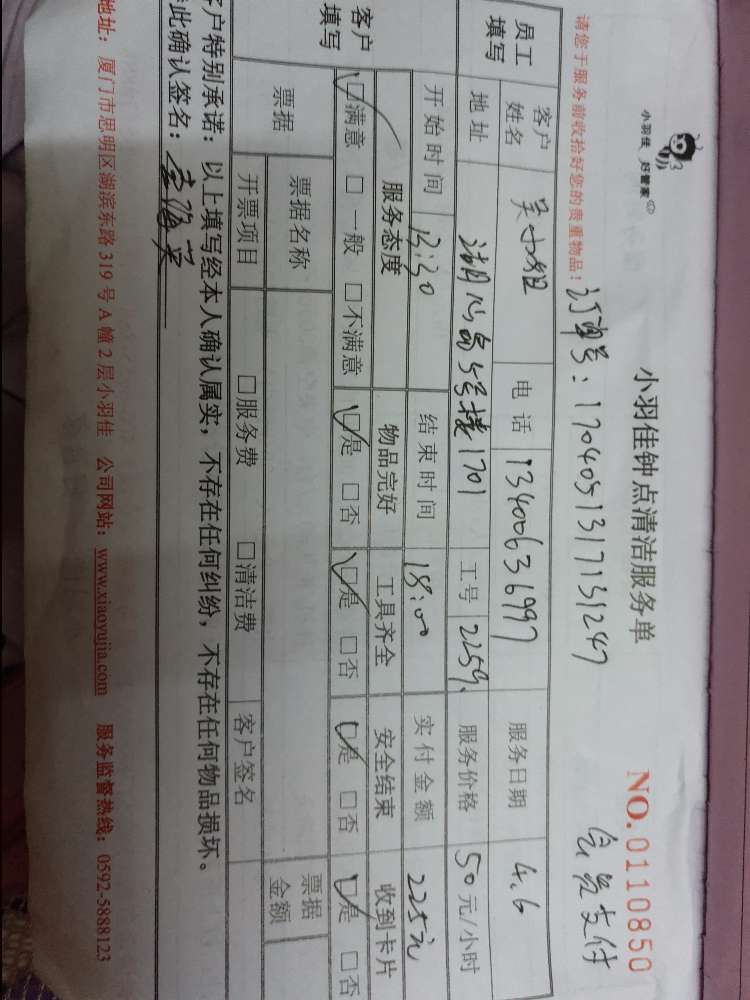 小羽佳 好管家
小羽佳钟点清洁服务单
NO.0110850
请您于服务前收拾好您的贵重物品！
订单号：170405131713124
会员支付
员工填写 客户姓名 吴小姐 电话 13400636997 服务日期 4.6
地址 湖心岛 号楼1701 工号 2259 服务价格 50元/小时
开始时间 13:30 结束时间 18:00 实付金额 225元
客户填写 服务态度 物品完好 工具齐全 安全结束 收到卡片
☑满意 □一般 □不满意 ☑是 □否 ☑是 □否 ☑是 □否 ☑是 □否
票据 票据名称 票据金额
开票项目 □服务费 □清洁费 客户签名
户特别承诺：以上填写经本人确认属实，不存在任何纠纷，不存在任何物品损坏。
此确认签名：
地址：厦门市思明区湖滨东路319号A幢2层小羽佳 公司网站：www.xiaoyujia.com 服务监督热线：0592-5888123